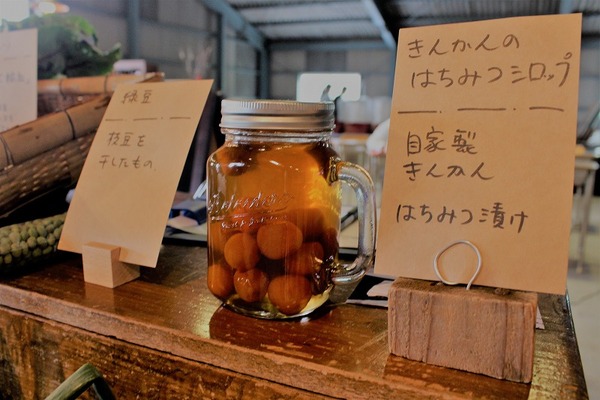 緑豆
枝豆を
干したもの
きんかんの
はちみつシロップ
自家製
きんかん
はちみつ漬け